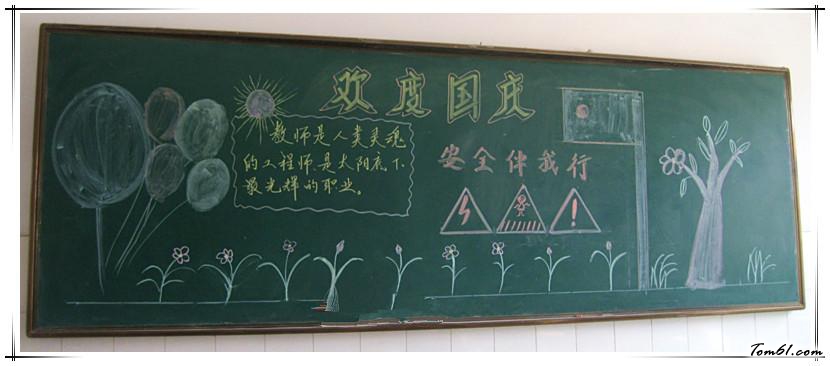 欢度国庆
教师是人类灵魂
的工程师，是太阳底下
最光辉的职业。
安全伴我行
Tom61.com